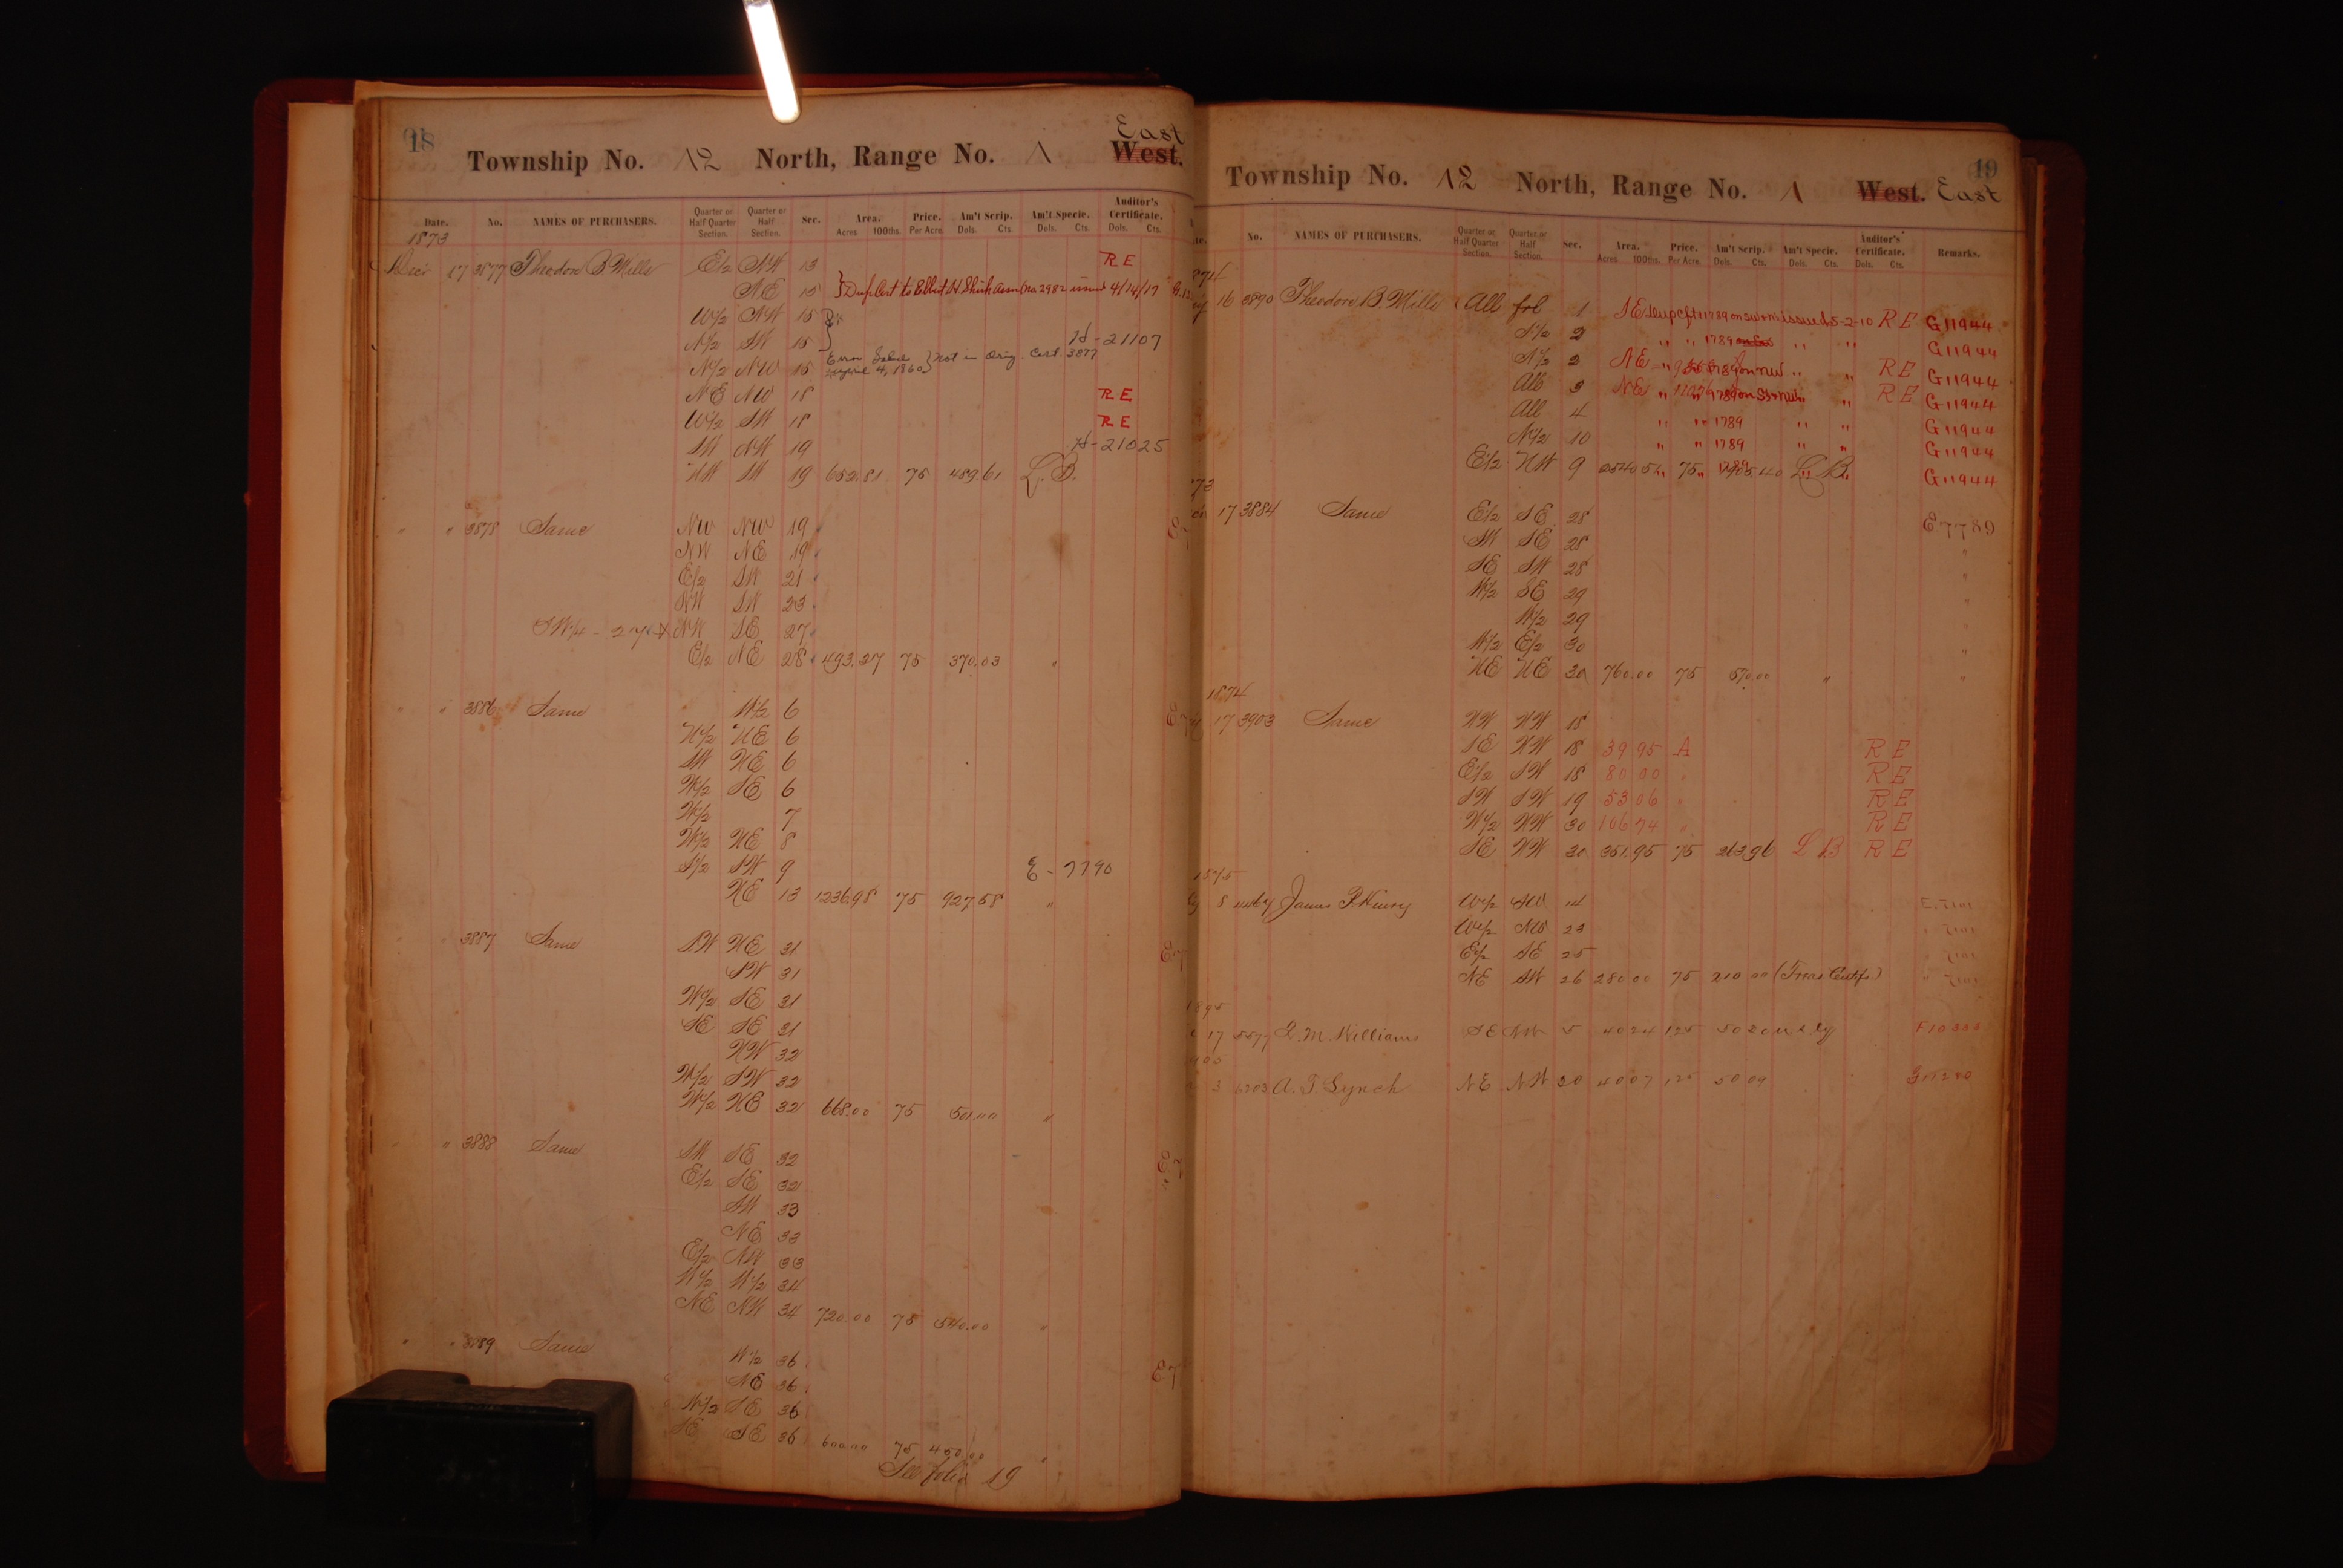 18
East
Township No. 12 North, Range No. 1 West.
Date. No. NAMES OF PURCHASERS. Quarter or Half Quarter Section. Quarter or Half Section. Sec. Area. Acres 100ths. Price. Per Acre. Am't Scrip. Dols. Cts. Am't Specie. Dols. Cts. Auditor's Certificate. Dols. Cts.
1873
17 3877 Theodore B Mills E/2 SW 13 R E
NE 15 } Dup Cert to Elliot H Shirk assn (No 2982 issued 4/14/17
W/2 NW 15
N/2 SW 15 H-21107
N/2 NW 15 } Not in Orig. Cert. 3877
NE NW 18 R E
W/2 SW 18 R E
SW NW 19 H-21025
NW SW 19 652.81 75 489.61 L.B.
" " 3878 Same NW NW 19
NW NE 19
E/2 SW 21
NW SW 23
NW SE 27
E/2 NE 28 493.27 75 370.03 "
" " 3886 Same N/2 6
N/2 NE 6
SW NE 6
W/2 SE 6
W/2 7
W/2 NE 8
S/2 SW 9 E-7790
NE 13 1236.98 75 927.58 "
3887 Same SW NE 31
SW 31
W/2 SE 31
SE SE 31
NW 32
W/2 SW 32
W/2 NE 32 668.00 75 501.00 "
" 3888 Same SW SE 32
E/2 SE 32
SW 33
NE 33
E/2 NW 33
W/2 W/2 34
NE NW 34 720.00 75 540.00 "
" " 3889 Same W/2 36
NE 36
N/2 SE 36
SE SE 36 600.00 75 450.00 "
See folio 19
19
Township No. 12 North, Range No. 1 West. East
No. NAMES OF PURCHASERS. Quarter or Half Quarter Section. Quarter or Half Section. Sec. Area. Acres 100ths. Price. Per Acre. Am't Scrip. Dols. Cts. Am't Specie. Dols. Cts. Auditor's Certificate. Dols. Cts. Remarks.
16 3890 Theodore B. Mills All frl 1 SE issued 5-2-10 R E G11944
S/2 2 " " 1789 " " G11944
N/2 2 NE " " R E G11944
All 3 NE " " R E G11944
All 4 " " 1789 " " G11944
N/2 10 " " 1789 " " G11944
E/2 NW 9 75 L.B. G11944
17 3884 Same E/2 SE 28 E7789
SW SE 28 "
SE SW 28 "
W/2 SE 29 "
W/2 29
W/2 E/2 30 "
NE NE 30 760.00 75 570.00 " "
1874
17 3903 Same NW NW 18
SE NW 18 39 95 A R E
E/2 SW 18 80 00 " R E
SW SW 19 53 06 " R E
W/2 NW 30 106 74 " R E
SE NW 30 351.95 75 263.96 L B R E
1875
8 James P. Henry W/2 SW 14
W/2 NW 23
E/2 SE 25
NE SW 26 280 00 75 210 00 (Treas Certifs)
1895
17 5577 Williams SE NW 5 40 24 125 50 20
3 6203 A. T. Lynch NE NW 30 40 07 125 50 09